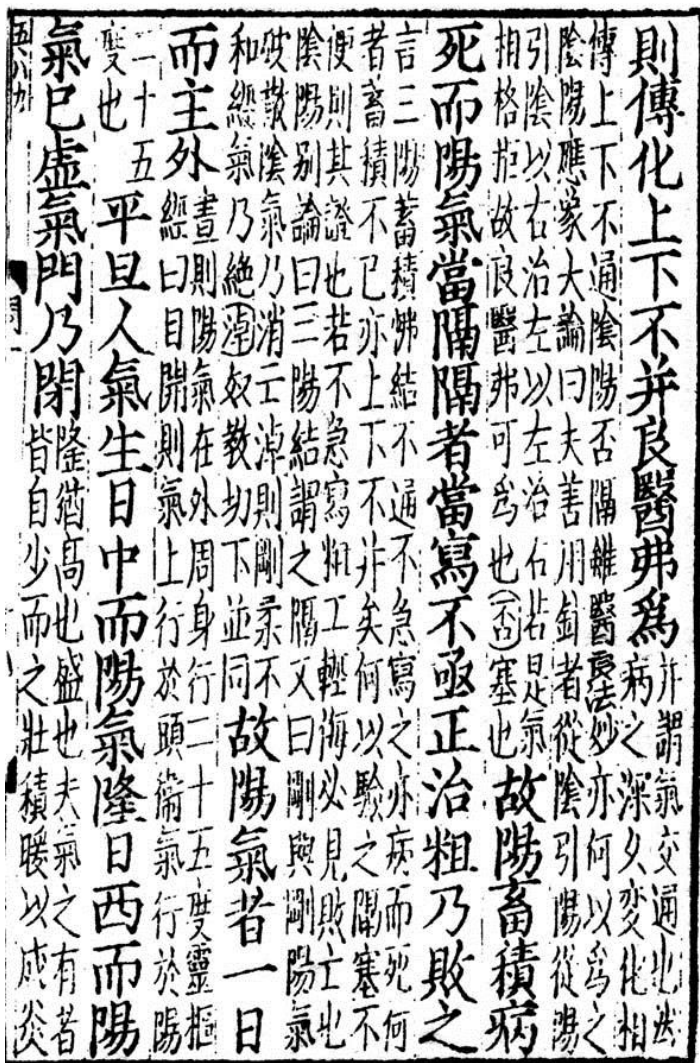 則傳化上下不并良醫弗爲
并謂氣交通也然
病之深久変化相
傳上下不通隂陽否隔雖醫良法妙亦何以爲之
隂陽應象大論曰夫善用針者從隂引陽從陽
引隂以右治左以左治右若是氣
相格拒故良醫弗可爲也否塞也
故陽畜積病
死而陽氣當隔隔者當寫不亟正治粗乃敗之
言三陽蓄積怫結不通不急寫之亦病而死何
者畜積不已亦上下不并矣何以驗之隔塞不
便則其證也若不急寫粗工輕海必見敗亡也
隂陽别論曰三陽結謂之隔又曰剛與剛陽氣
破散隂氣乃消亡淖則剛柔不
和經氣乃絶淖奴教切下並同
故陽氣者一日
而主外
晝則陽氣在外周身行二十五度靈樞
經曰目開則氣上行於頭衛氣行於陽
二十五
度也
平旦人氣生日中而陽氣隆日西而陽
氣已虛氣門乃閉
隆猶高也盛也夫氣之有者
皆自少而之壯積暖以成炎